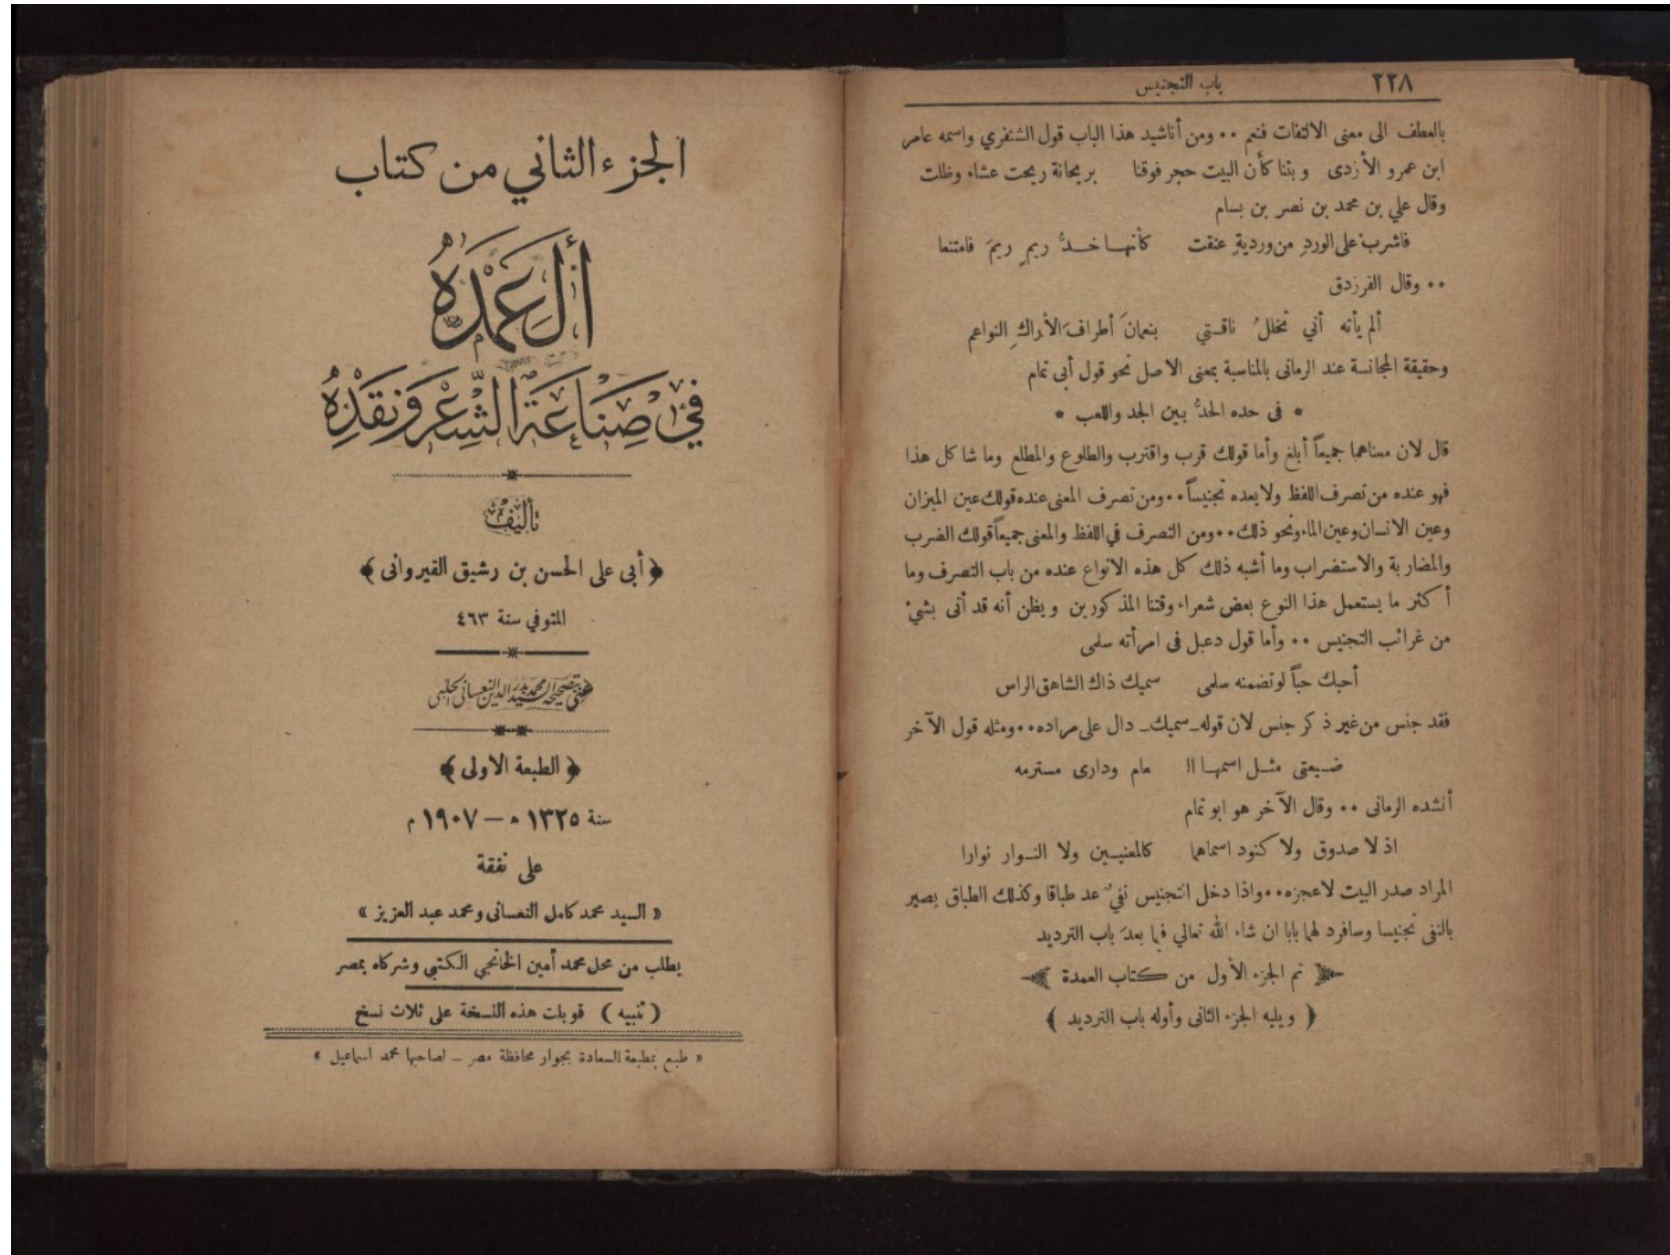 ٢٢٨
باب التجنيس
بالعطف الى معنى الالتفات فنعم ٠٠ ومن أناشيد هذا الباب قول الشنفري واسمه عامر
ابن عمرو الأزدى وبتنا كأن البيت حجر فوقنا بريحانة ريحت عشاء وظلت
وقال علي بن محمد بن نصر بن بسام
فاشرب على الوردِ من ورديةٍ عتقت كأنهـا خـدُّ ريمٍ ريمَ فامتنعا
٠٠ وقال الفرزدق
ألم يأته أني تخللُ ناقـتي بنعمانَ أطرافَ الأراكِ النواعم
وحقيقة المجانسة عند الرمانى بالمناسبة بمعنى الاصل نحو قول أبى تمام
* فى حده الحدُّ بين الجد واللعب *
قال لان معناهما جميعاً أبلغ وأما قولك قرب واقترب والطلوع والمطلع وما شاكل هذا
فهو عنده من تصرف اللفظ ولا يعده تجنيساً٠٠ومن تصرف المعنى عنده قولك عين الميزان
وعين الانسان وعين الماء ونحو ذلك٠٠ومن التصرف في اللفظ والمعنى جميعاً قولك الضرب
والمضاربة والاستضراب وما أشبه ذلك كل هذه الانواع عنده من باب التصرف وما
أكثر ما يستعمل هذا النوع بعض شعراء وقتنا المذكورين ويظن أنه قد أتى بشيْ
من غرائب التجنيس ٠٠ وأما قول دعبل فى امرأته سلمى
أحبك حباً لو تضمنه سلمى سميك ذاك الشاهق الراس
فقد جنس من غير ذكر جنس لان قوله ـ سميك ـ دال على مراده٠٠ومثله قول الآخر
ضـيعتى مثـل اسمهـا الـ ـعام ودارى مسترمه
أنشده الرمانى ٠٠ وقال الآخر هو ابو تمام
اذ لا صدوق ولا كنود اسماهما كالمعنيـين ولا النـوار نوارا
المراد صدر البيت لا عجزه٠٠واذا دخل التجنيس نفيٌ عد طباقا وكذلك الطباق يصير
بالنفى تجنيسا وسافرد لهما بابا ان شاء الله تعالي فيما بعدَ باب الترديد
تم الجزء الأول من كتاب العمدة
﴿ ويليه الجزء الثانى وأوله باب الترديد ﴾
الجزء الثاني من كتاب
ألعُمْدَه
في صِناعَةِ الشِّعْرِ وَنَقْدِهْ
تأليف
﴿ أبى على الحسن بن رشيق القيروانى ﴾
المتوفي سنة ٤٦٣
عني بتصحيحه السيد محمد بدر الدين النعساني الحلبي
﴿ الطبعة الاولى ﴾
سنة ١٣٢٥ ه — ١٩٠٧ م
على نفقة
« السيد محمد كامل النعسانى ومحمد عبد العزيز »
يطلب من محل محمد أمين الخانجي الكتبي وشركاه بمصر
( تنبيه ) قوبلت هذه النسخة على ثلاث نسخ
« طبع بمطبعة السعادة بجوار محافظة مصر ـ لصاحبها محمد اسماعيل »